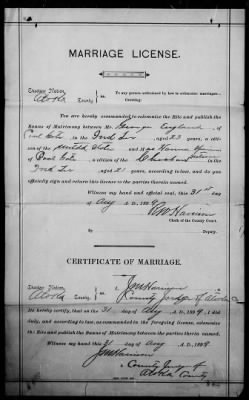 MARRIAGE LICENSE.
Choctaw Nation, To any person authorized by law to solemnize marriages—
Atoka County: Greeting:
You are hereby commanded to solemnize the Rite and publish the
Banns of Matrimony between Mr. George
Coal Gate, in the Ind Ter aged 23 years, a citi-
zen of the United States and M Hanna
of Coal Gate, a citizen of the
Ind Ter aged 21 years, according to law, and do you
officially sign and return this license to the parties therein named.
Witness my hand and official seal, this 31st day
of Aug A. D., 1899
Harrison
Clerk of the County Court.
By Deputy.
CERTIFICATE OF MARRIAGE.
Choctaw Nation, J M Harrison
Atoka County: County Judge of Atoka Co
do hereby certify, that on the 31 day of Aug A. D., 1899, I did
duly, and according to law, as commanded in the foregoing license, solemnize
the Rite and publish the Banns of Matrimony between the parties therein named.
Witness my hand this 31 day of Aug A. D., 1899
J M Harrison
a County Judge of
Atoka County